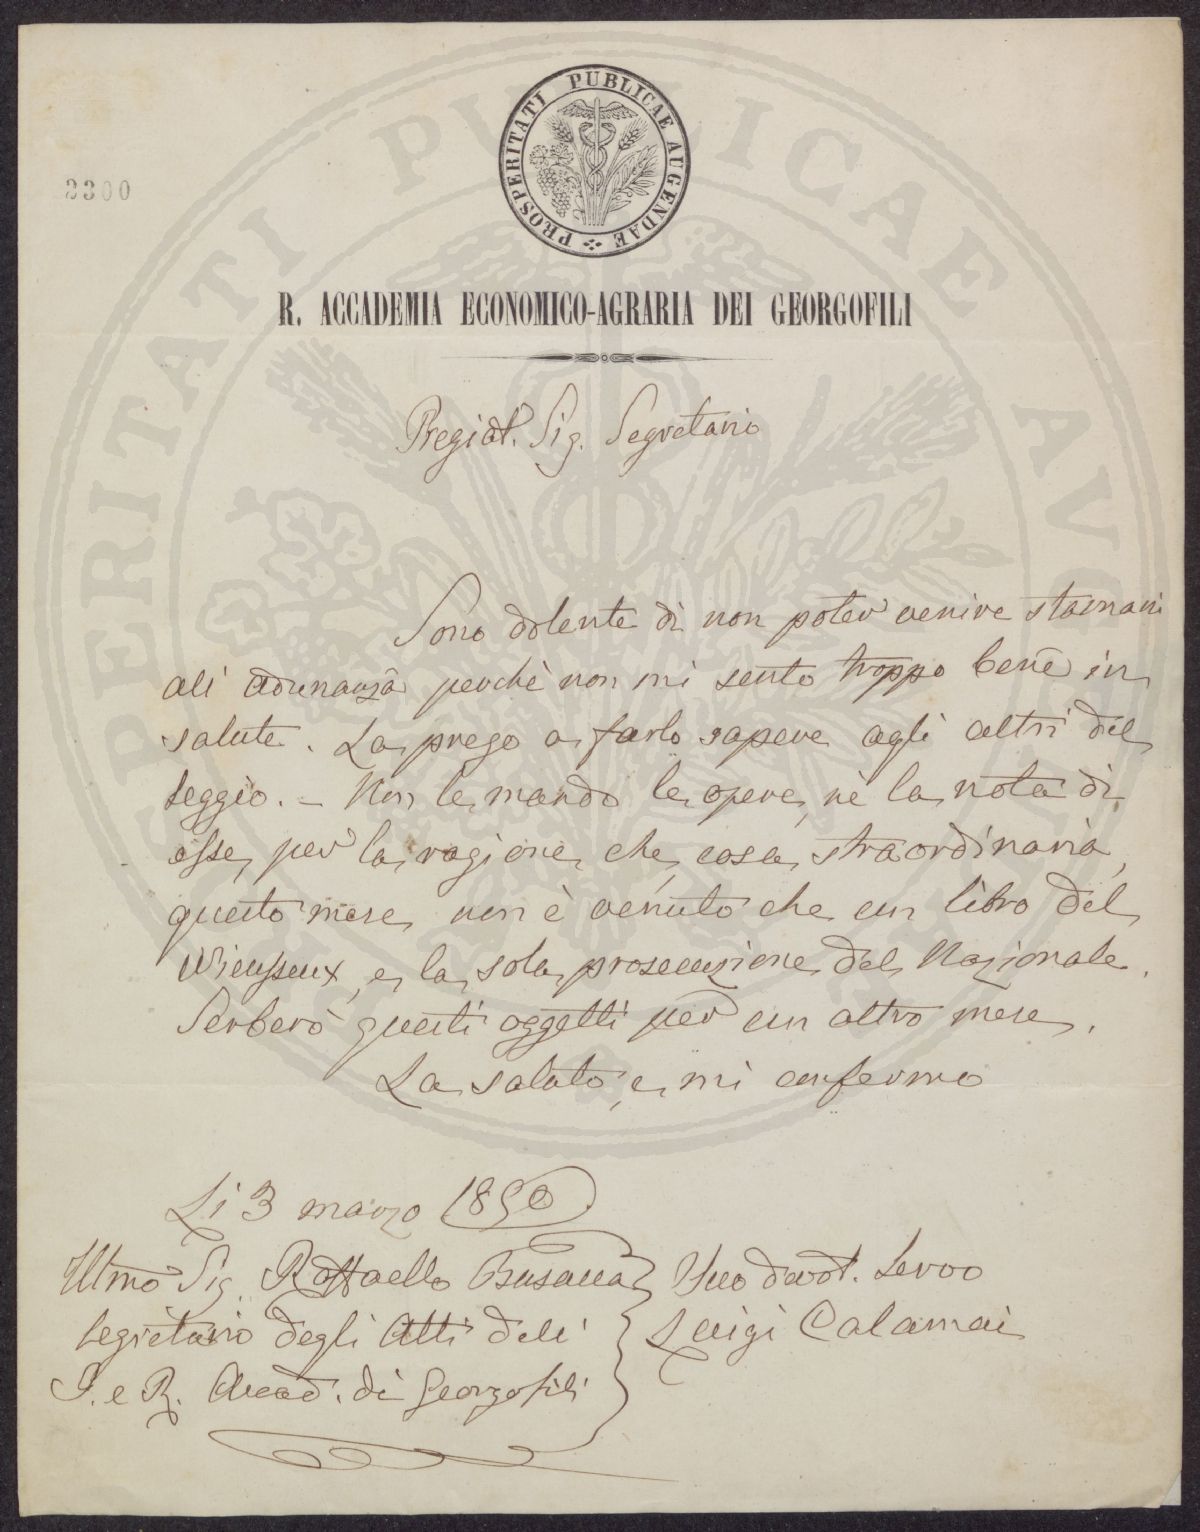 PROSPERITATI PUBLICAE AUGENDAE
3300
R. ACCADEMIA ECONOMICO-AGRARIA DEI GEORGOFILI
Pregiat. Sig. Segretario
Sono dolente di non poter venire stamani
all' adunanza perchè non mi sento troppo bene in
salute. La prego a farlo sapere agli altri del
seggio. - Non le mando le opere, nè la nota di
esse, per la ragione, che, cosa straordinaria,
questo mese non è venuto che un libro del
Vieusseux, e la sola prosecuzione del Nazionale.
Serberò questi oggetti per un altro mese.
La saluto, e mi confermo
Li 3 marzo 1850
Illmo Sig. Raffaello Busacca
Segretario degli Atti dell'
I. e R. Accad. di Georgofili
Suo devot. Servo
Luigi Calamai